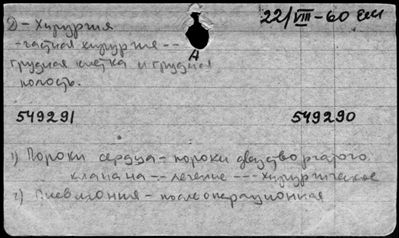 Д - Хирургия
22/VIII-60
-частная хирургия --
A
грудная клетка и грудная
полость.
549291 549290
1) Пороки сердца - пороки двухстворчатого
клапана -- лечение --- хирургическое
2) Пневмония - послеоперационная